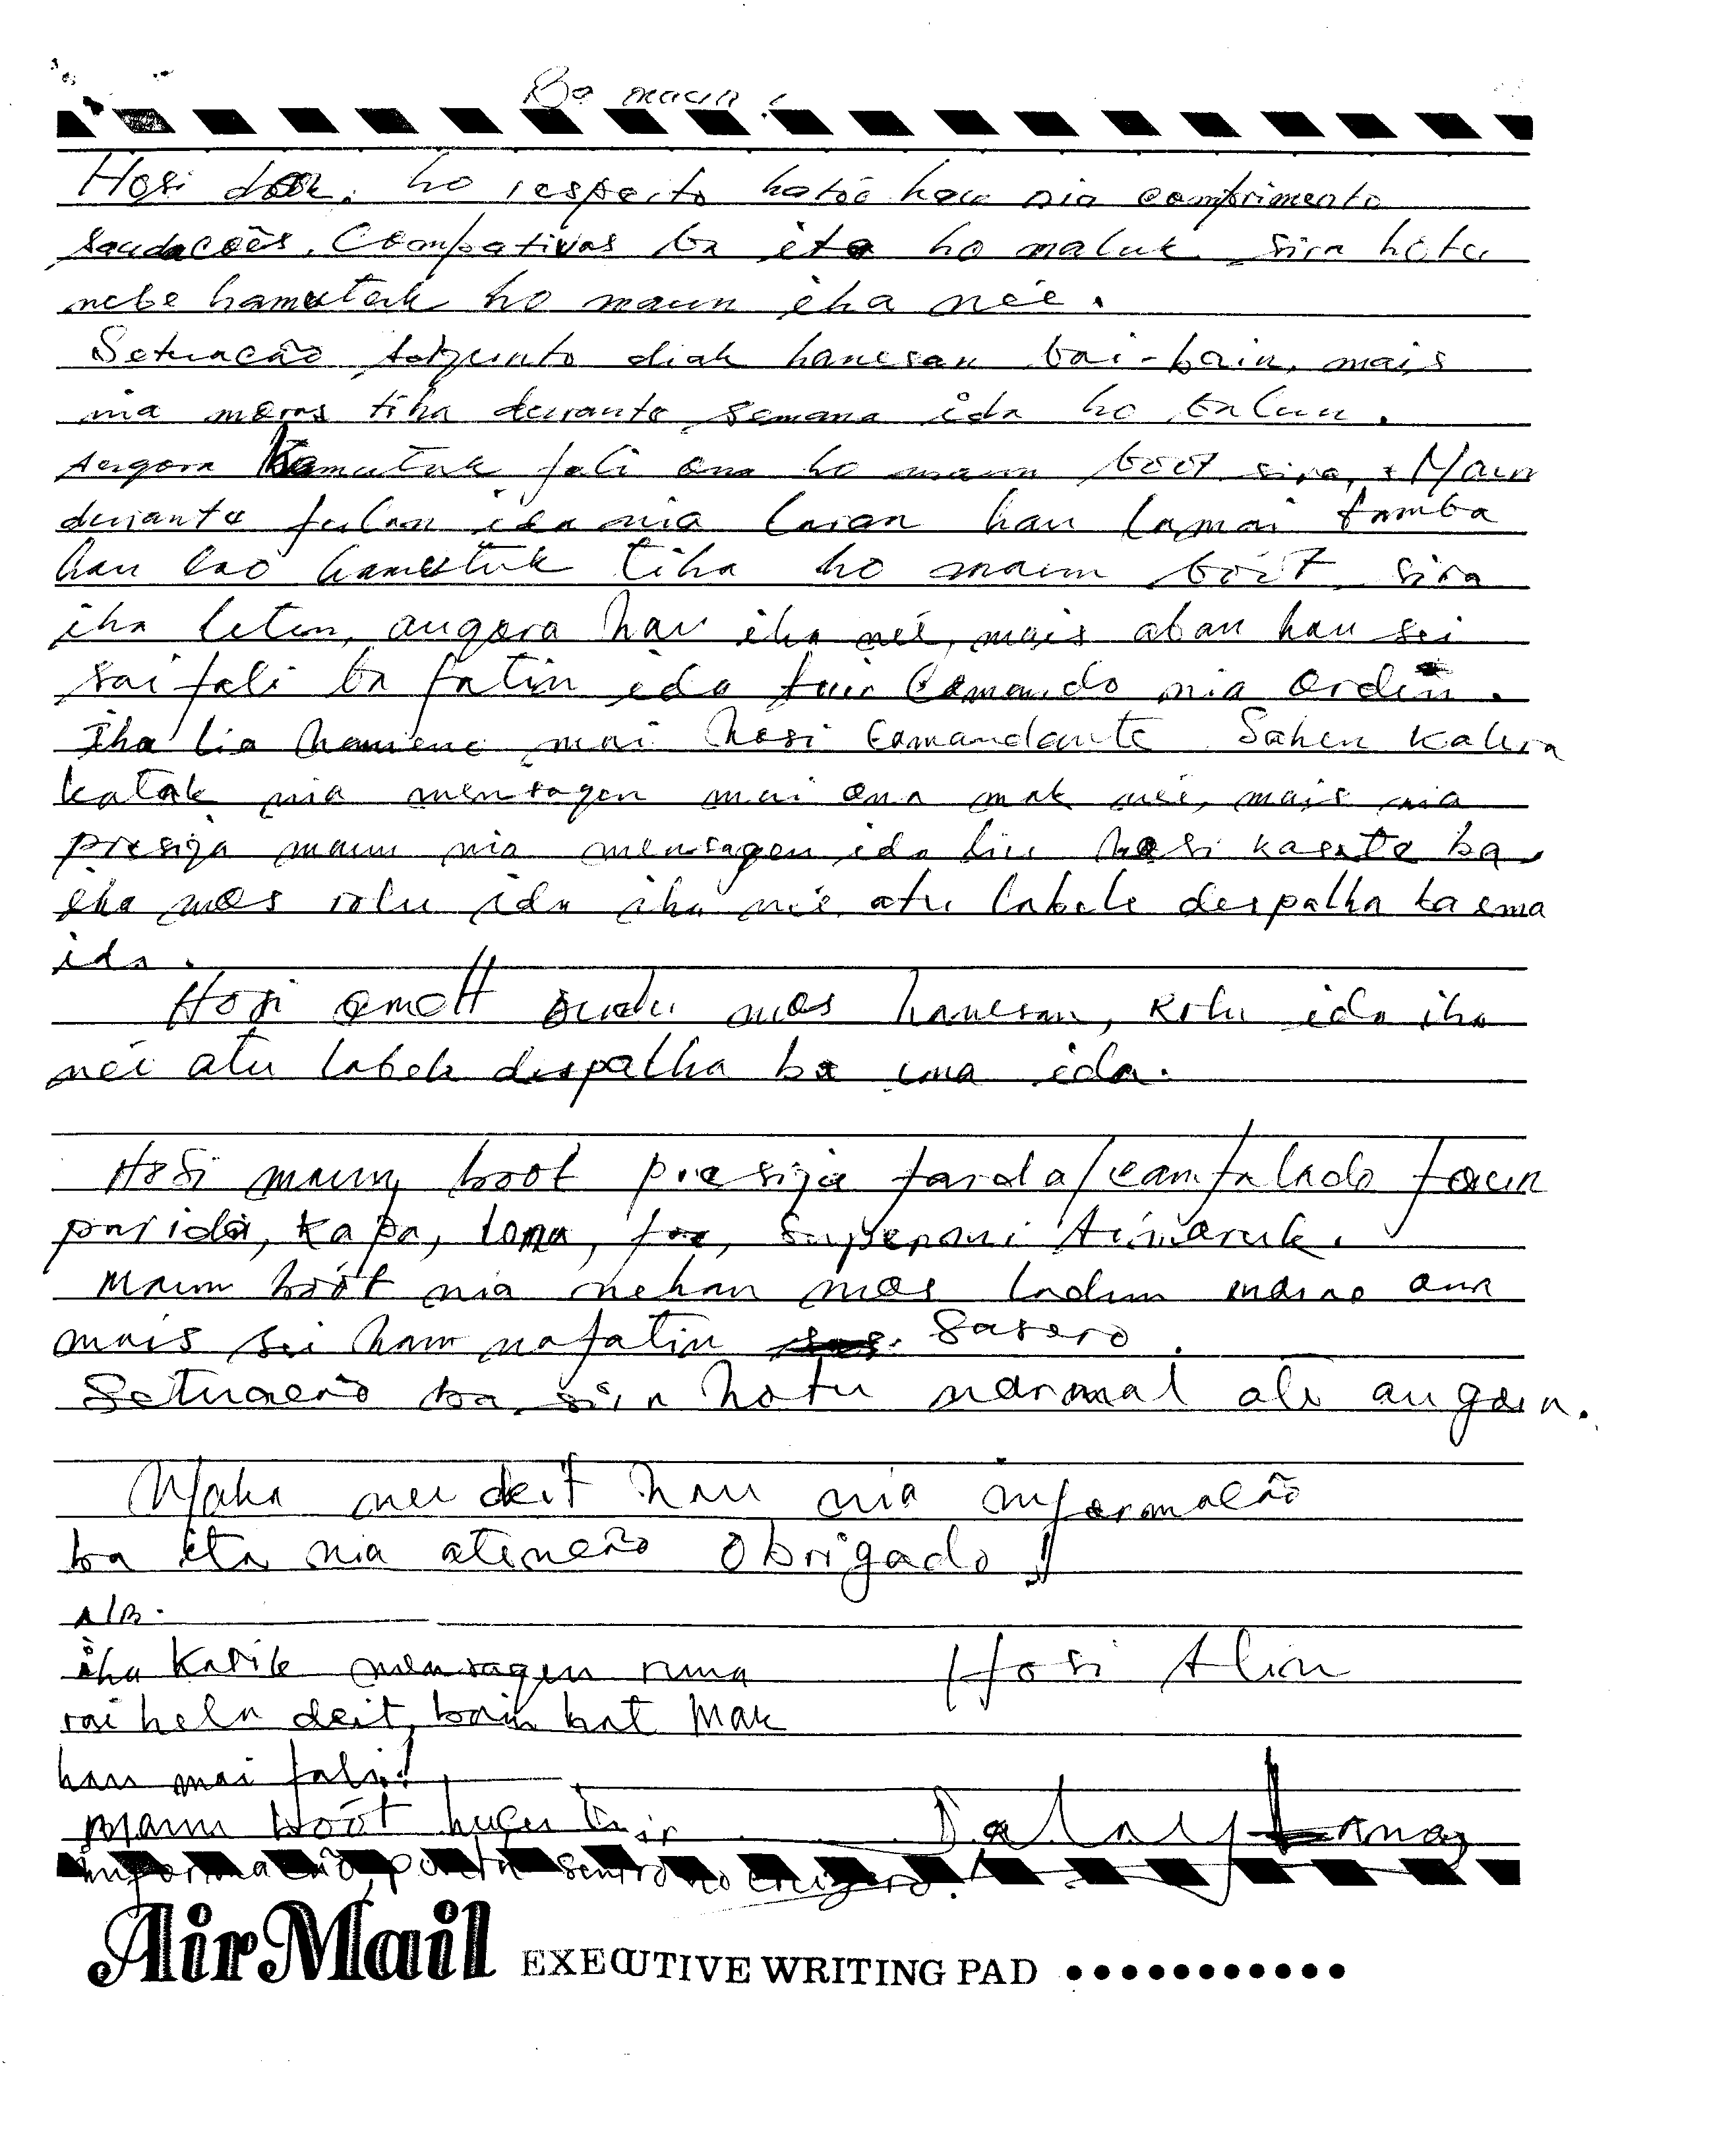 Ba maun
Hosi dook, ho respeito hatoo hau nia comprimento
saudacoēs. Compativas ba ita ho maluk sira hotu
nebe hamutuk ho maun iha neé.
Setuacão diak hanesan bai-bain, mais
nia moras tiha duranto semana ida ho balun.
Augora hamutuk fali ona ho maun boót sira, Maun
duranto fulan ida nia laran hau lamai tamba
hau lao hamutuk tiha ho maun boót sira
iha leten, augora hau iha neé, mais aban hau sei
sai fali ba fatin ida tuir Comando nia orden.
Iha lia hamenu mai hosi Comandante Sahen Kalura
katak nia mensagen mai ona mak neé, mais nia
presija maun nia mensagen ida liu hosi kasete ba
iha mos rolu ida iha neé atu labele despalha ba ema
ida.
Hosi amo mos hanesan, Rolu ida iha
neé atu labele despalha ba ema ida.
Hosi maun boot presija farda/camfalado foun
parida, kapa, lona, foe, supermi Aimaruk.
Maun boót nia nehan mos ladun ona
mais sei ham nafatin Sasero.
Setuacão ba sira hotu normal ate augora.
Maka neé deit hau nia informacão
ba ita nia atencão Obrigado!
N/B.
iha Karik mensagen ruma
rai hela deit, bain hat Mak
hau mai fali!
Hosi Alin
Maun boót husu tuir
informacão, ponta sentro ho cruzero!
AirMail EXECUTIVE WRITING PAD